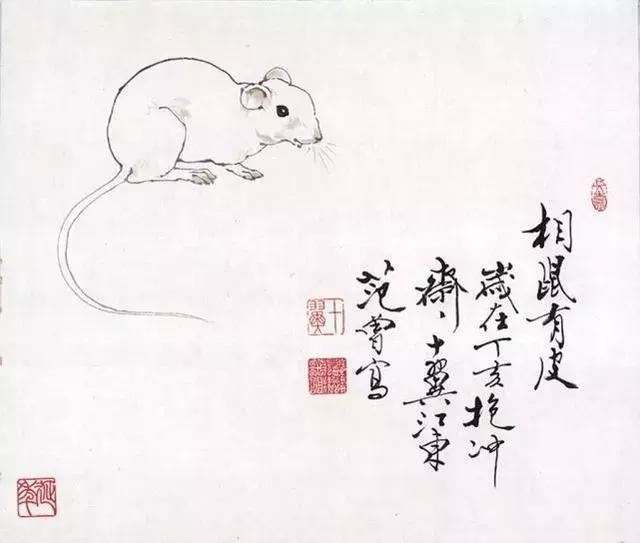 相鼠有皮
歲在丁亥抱冲
齋、十翼江東
范曾寫
十翼
延年